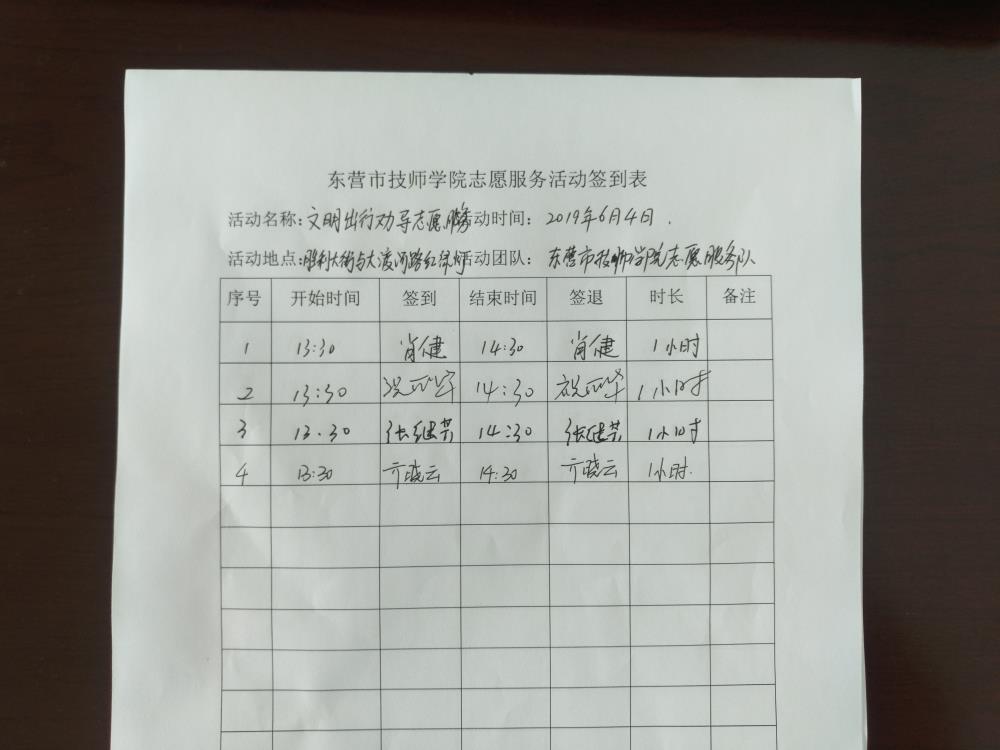 东营市技师学院志愿服务活动签到表
活动名称：文明出行劝导志愿服务活动时间：2019年6月4日．
活动地点：胜利大街与大渡河路红绿灯活动团队：东营市技师学院志愿服务队
序号 开始时间 签到 结束时间 签退 时长 备注
1 13:30 肖健 14:30 肖健 1小时
2 13:30 14:30 1小时
3 13.30 张继芸 14:30 张继芸 1小时
4 13:30 亓晓云 14:30 亓晓云 1小时.